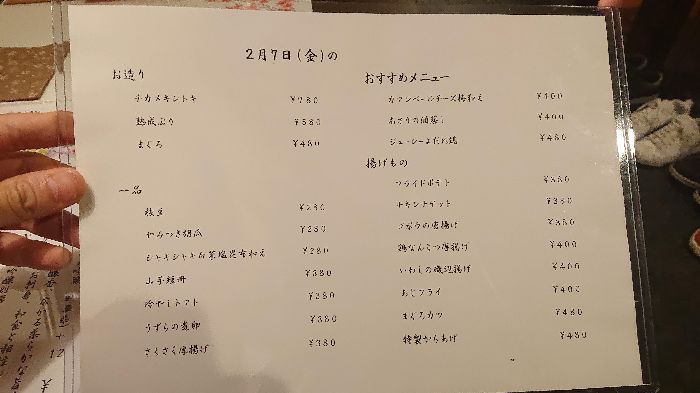 2月7日(金)の
お造り
チカメキントキ ¥780
熟成ぶり ¥580
まぐろ ¥480
一品
枝豆 ¥280
やみつき胡瓜 ¥280
シャキシャキ白菜塩昆布和え ¥280
山芋短冊 ¥380
冷やしトマト ¥380
うずらの煮卵 ¥380
さくさく厚揚げ ¥380
おすすめメニュー
カマンベールチーズ梅和え ¥400
あさりの酒蒸し ¥400
ジューシーよだれ鶏 ¥480
揚げもの
フライドポテト ¥380
チキンナゲット ¥380
ゴボウの唐揚げ ¥380
鶏なんこつ唐揚げ ¥400
いわしの磯辺揚げ ¥400
あじフライ ¥400
まぐろカツ ¥480
特製からあげ ¥480